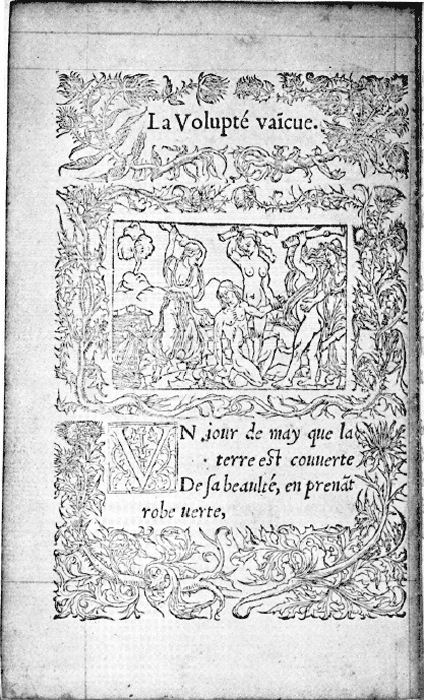 La Volupté vaĩcue.
VN jour de may que la
terre est couuerte
De sa beaulté, en prenãt
robe uerte,